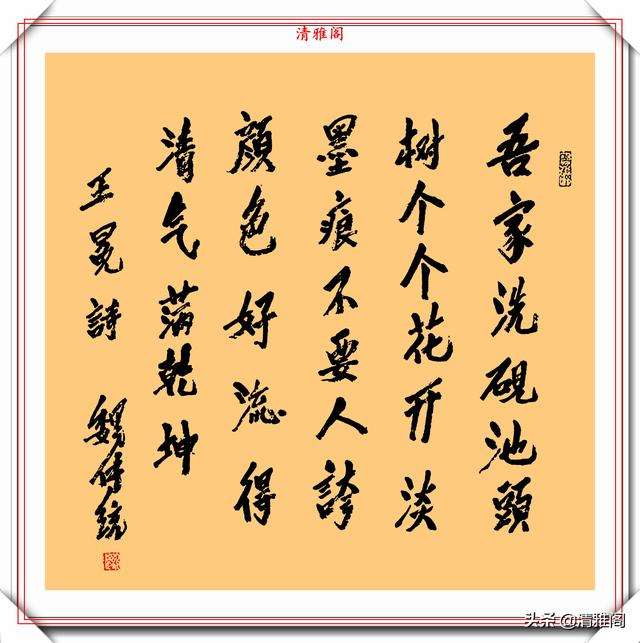 清雅阁
吾家洗砚池頭
树个个花开淡
墨痕不要人誇
顔色好流得
清气满乾坤
王冕詩
魏传统
头条@清雅阁